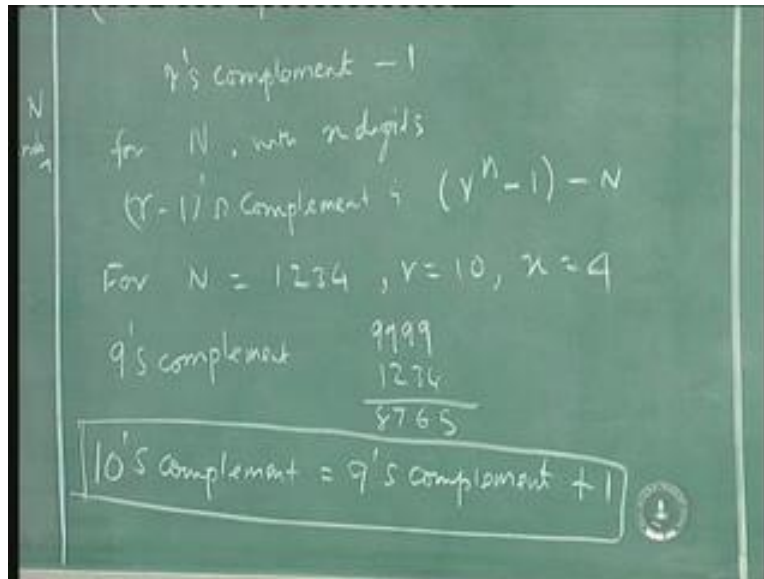 r's complement - 1
N
for N, with n digits
(r-1)'s Complement is (r^n - 1) - N
For N = 1234, r = 10, n = 4
9's complement 9999
1234
8765
10's complement = 9's complement + 1